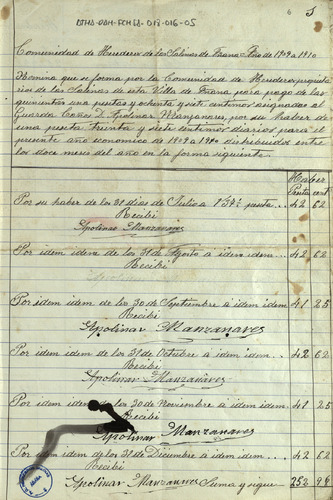 ATHA-DAH-FCHSA-018-016-05
6
Comunidad de Herederos de las Salinas de Añana Año de 1909 a 1910
Nómina que se forma por la Comunidad de Herederos propieta
rios de las Salinas de esta Villa de Añana para pago de las
quinientas una pesetas y ochenta y siete centimos asignadas al
Guarda Caños D. Apolinar Manzanares, por su haber de
una peseta treinta y siete centimos diarios para el
presente año economico de 1909 a 1910 distribuidos entre
los doce meses del año en la forma siguiente.
Haber
Pesetas cent
Por su haber de los 31 dias de Julio a 1'37½ peseta 42 62
Recibí
Apolinar Manzanares
Por idem idem de los 31 de Agosto a idem idem 42 62
Recibí
Por idem idem de los 30 de Septiembre a idem idem 41 25
Recibí
Apolinar Manzanares
Por idem idem de los 31 de Octubre a idem idem 42 62
Recibí
Apolinar Manzanares
Por idem idem de los 30 de Noviembre a idem idem 41 25
Recibí
Apolinar Manzanares
Por idem idem de los 31 de Diciembre a idem idem 42 62
Recibí
Apolinar Manzanares Suma y sigue 252 98